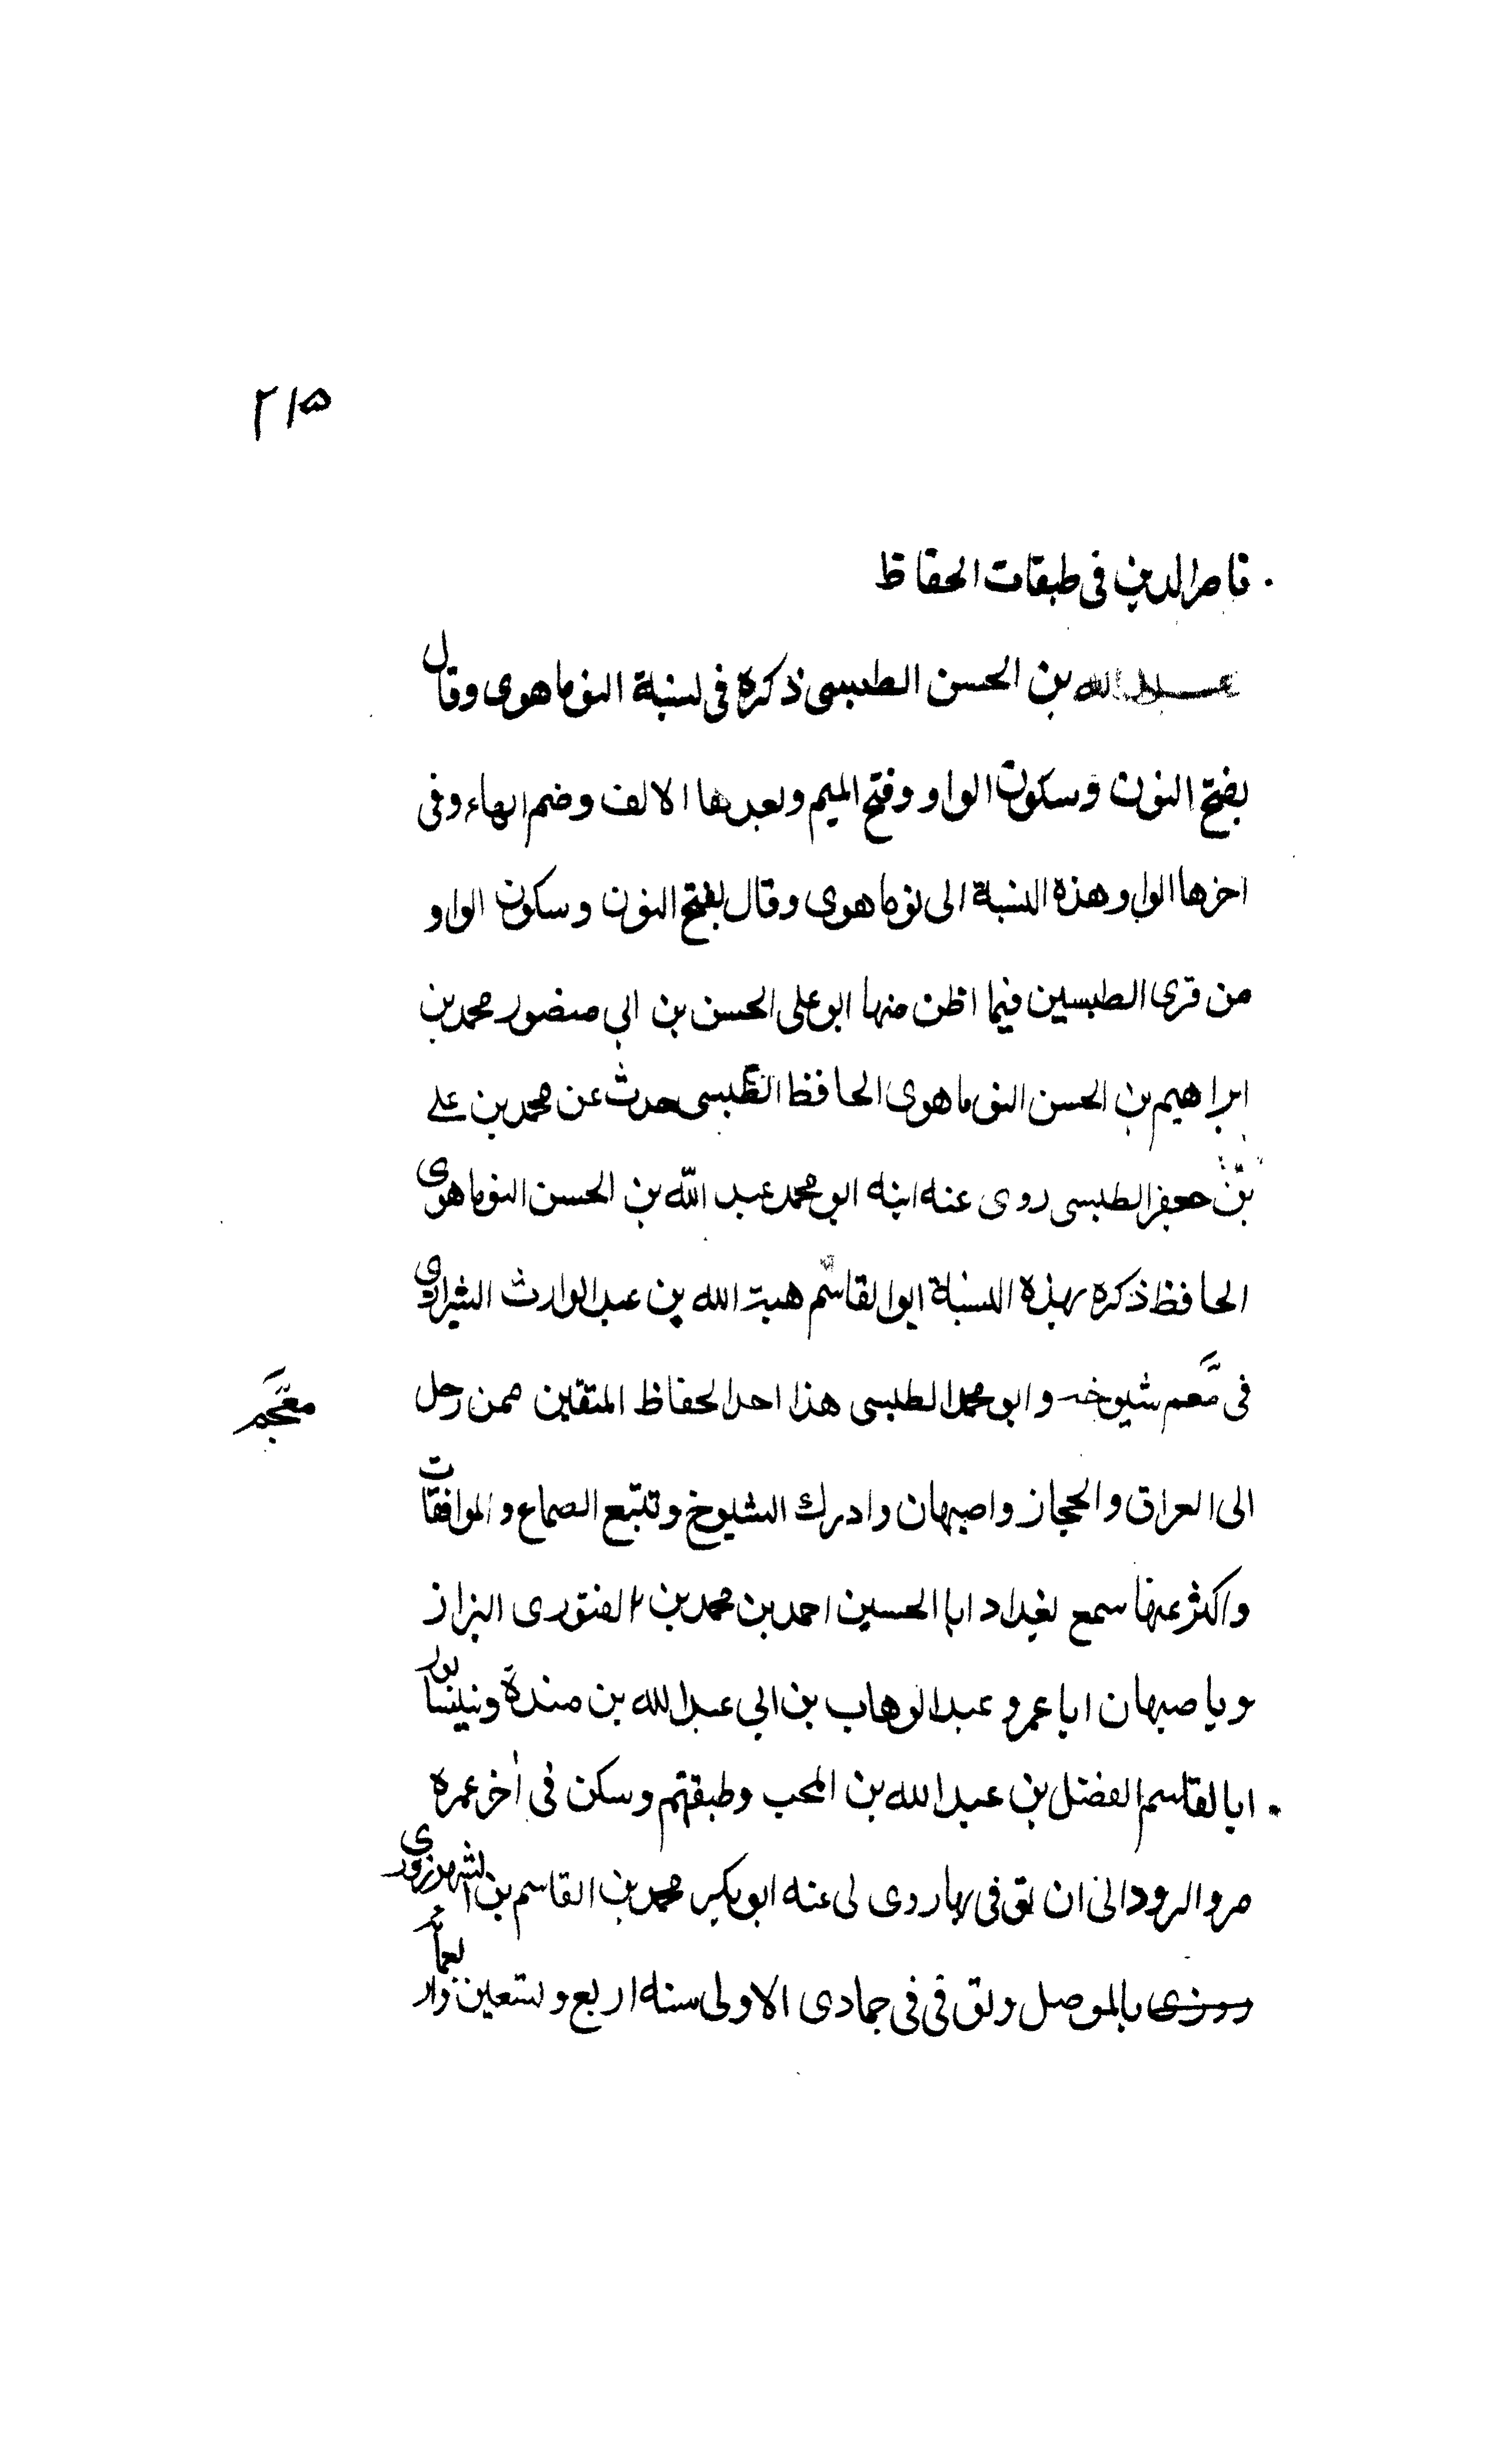 ٢١٥
ناصر الدين في طبقات الحفاظ
عبد الله بن الحسن الطبسى ذكره فى نسبة النوماهوى وقال
بفتح النون وسكون الواو وفتح الميم وبعدها الالف وضم الهاء وفى
اخرها الواو وهذه النسبة الى نوماهوى وقال بفتح النون وسكون الواو
من قرى الطبسين فيما اظن منها ابو على الحسن بن ابى منصور محمد بن
ابراهيم بن الحسن النوماهوى الحافظ الطبسى حدث عن محمد بن على
بن جعفر الطبسى روى عنه ابنه ابو محمد عبد الله بن الحسن النوماهوى
الحافظ ذكره بهذه النسبة ابوالقاسم هبة الله بن عبد الوارث الشيرازى
فى معم شيوخه وابو محمد الطبسى هذا احد الحفاظ المتقين ممن رحل
معجم
الى العراق والحجاز واصبهان وادرك الشيوخ وتتبع الصماع والموافقات
واكثر عنها سمع بغداد ابا الحسين احمد بن محمد بن النقورى البزاز
وباصبهان ابا عمرو عبد الوهاب بن ابى عبد الله بن مندة وبنيسابور
ابا القاسم الفضل بن عبد الله بن المحب وطبقتهم وسكن فى اخر عمره
مرو الرود الى ان توفى بها روى لى عنه ابو بكر محمد بن القاسم بن الشهرزورى
بالموصل وتوفى فى جمادى الاولى سنه اربع وتسعين واربعمائة